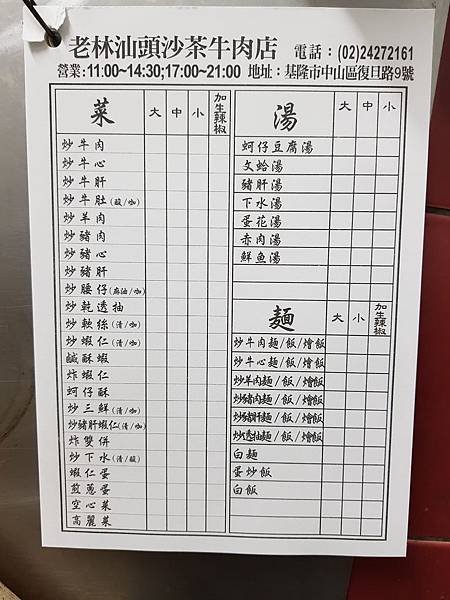 老林汕頭沙茶牛肉店 電話：(02)24272161
營業:11:00~14:30;17:00~21:00 地址：基隆市中山區復旦路9號
菜 大 中 小 加生辣椒
炒牛肉
炒牛心
炒牛肝
炒牛肚(酸/咖)
炒羊肉
炒豬肉
炒豬心
炒豬肝
炒腰仔(麻油/咖)
炒乾透抽
炒軟絲(清/咖)
炒蝦仁(清/咖)
鹹酥蝦
炸蝦仁
蚵仔酥
炒三鮮(清/咖)
炒豬肝蝦仁(清/咖)
炸雙併
炒下水(清/酸)
蝦仁蛋
煎蔥蛋
空心菜
高麗菜
湯 大 中 小
蚵仔豆腐湯
文蛤湯
豬肝湯
下水湯
蛋花湯
赤肉湯
鮮魚湯
麵 大 小 加生辣椒
炒牛肉麵/飯/燴飯
炒牛心麵/飯/燴飯
炒羊肉麵/飯/燴飯
炒豬肉麵/飯/燴飯
炒豬肝麵/飯/燴飯
炒透抽麵/飯/燴飯
白麵
蛋炒飯
白飯